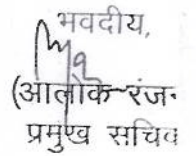 भवदीय,
(आलोक रंज
प्रमुख सचिव